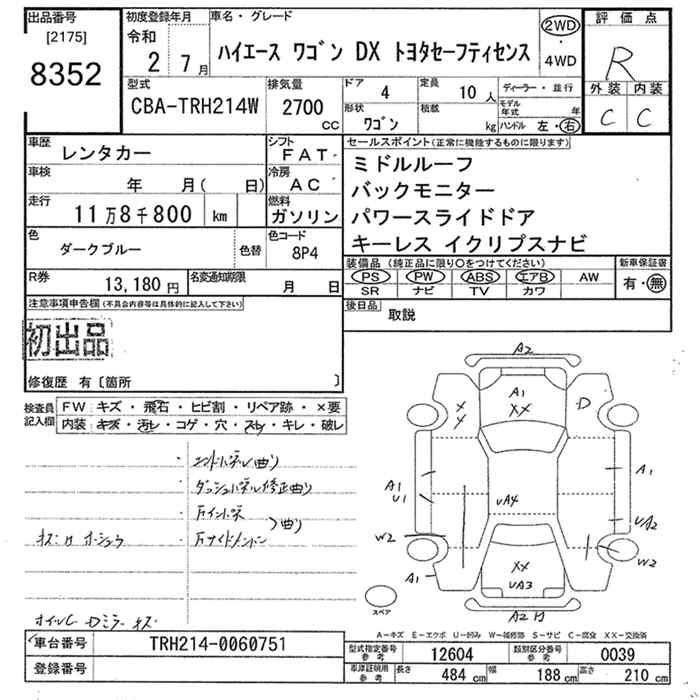 出品番号
[2175]
8352
初度登録年月
令和
2 7月
車名・グレード
ハイエース ワゴン DX トヨタセーフティセンス
2WD
・
4WD
評価点
R
外装 内装
C C
型式
CBA-TRH214W
排気量
2700
cc
ドア
4
定員
10人
形状
ワゴン
積載
kg
ディーラー・並行
モデル年式 年
ハンドル 左・右
車歴
レンタカー
シフト
FAT
車検
年 月( 日)
冷房
AC
走行
11万8千800 km
燃料
ガソリン
色
ダークブルー
色替
色コード
8P4
R券
13,180円
名変通知期限
月 日
セールスポイント(正常に機能するものに限ります)
ミドルルーフ
バックモニター
パワースライドドア
キーレス イクリプスナビ
装備品(純正品に限り〇をつけてください)
PS PW ABS エアB AW
SR ナビ TV カワ
新車保証書
有・無
後日品
取説
注意事項申告欄(不具合内容等は具体的に記入して下さい)
初出品
修復歴 有〔箇所 〕
検査員
記入欄
FW キズ・飛石・ヒビ割・リペア跡・×要
内装 キズ・汚レ・コゲ・穴・スレ・キレ・破レ
A2
A1
XX
D
A1
U1
A1
UA4
UA2
W2
W2
A1
XX
UA3
A2
スペア
A－キズ E－エクボ U－凹み W－補修跡 S－サビ C－腐食 XX－交換済
車台番号
TRH214-0060751
登録番号
型式指定番号
参考
12604
類別区分番号
参考
0039
車庫証明用
参考
長さ 484 cm 幅 188 cm 高さ 210 cm